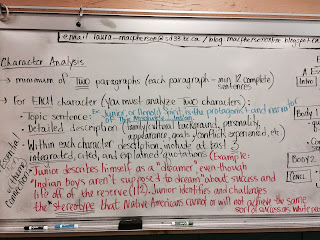 Character Analysis
→ minimum of TWO paragraphs (each paragraph - min. 12 complete sentences
→ For EACH character (you must analyze TWO characters):
- Topic sentence: Ex Junior, or Arnold Spirit, is the protagonist and narrator of
- Detailed description (family/cultural background, personality, appearance, goals, conflicts experienced, etc.)
- Within each character description, include at least 3 integrated, cited, and explained quotations (Example:
Junior describes himself as a "dreamer," even though
Indian boys aren't supposed to dream" about success and
life off of the reserve (112). Junior identifies and challenges
the stereotype that Native Americans cannot or will not achieve the same
sort of success as white
Essential
connection
Intro
Body 2